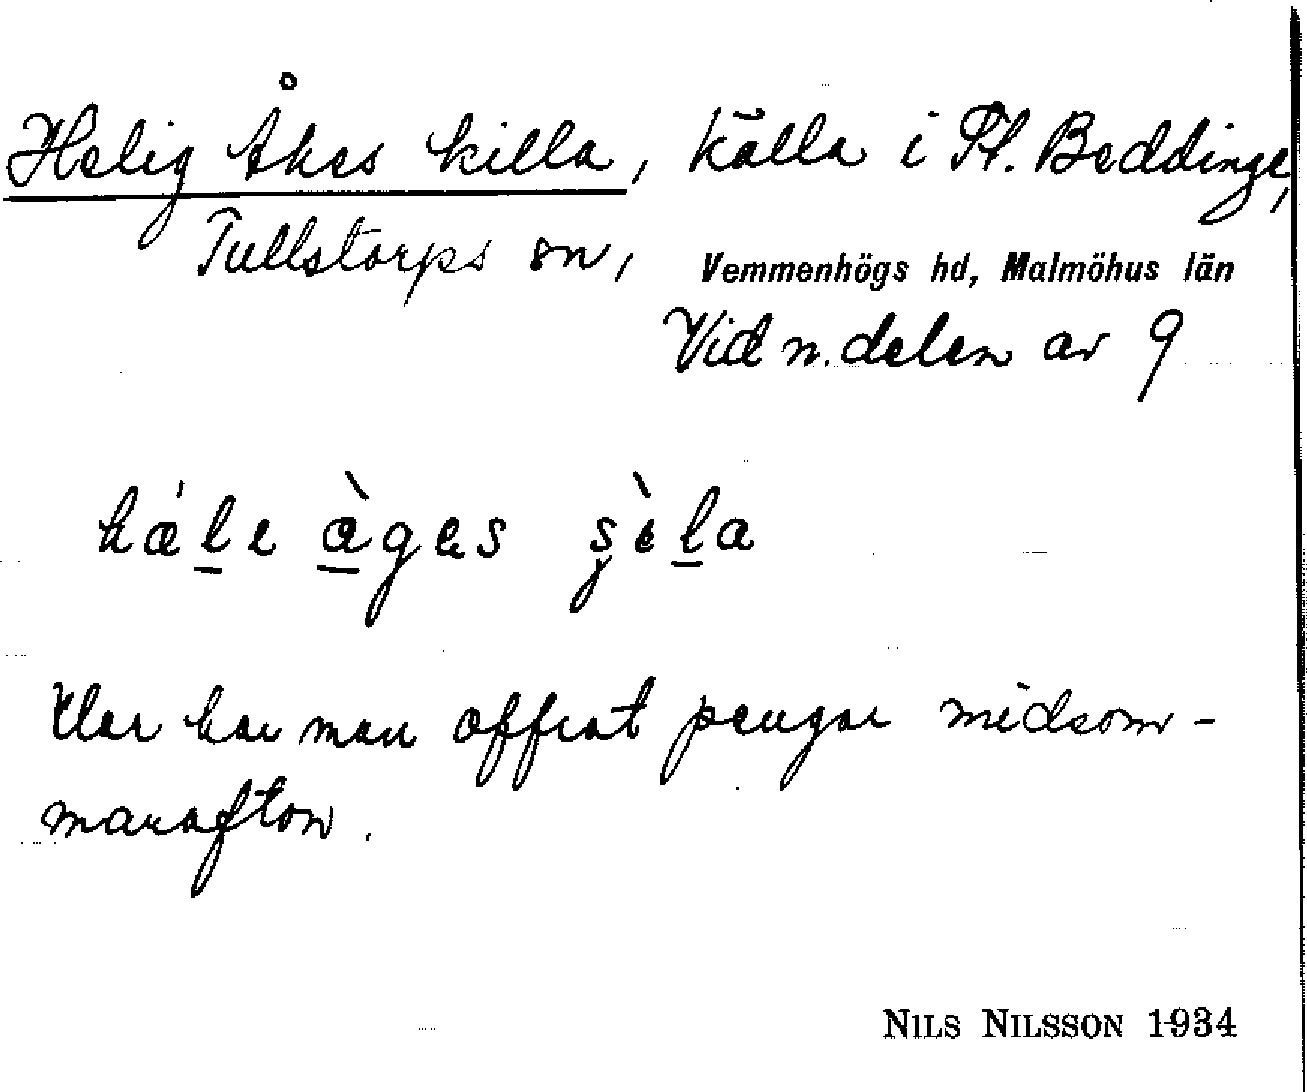 Helig Åkes killa, källa i St. Beddinge,
Tullstorps sn, Vemmenhögs hd, Malmöhus län
Vid n. delen av 9
hǽle àges şèla
Här har man offrat pengar midsom-
marafton.
NILS NILSSON 1934